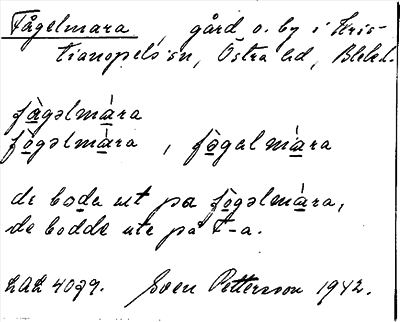 Fågelmara, gård o. by i Kris-
tianopels sn, Östra hd, Blek.
fògəlmàra
fògəlmára, fògəlmára
de boda ut pa fògəlmára,
de bodde ute på F-a.
LAL 4079. Sven Pettersson 1942.